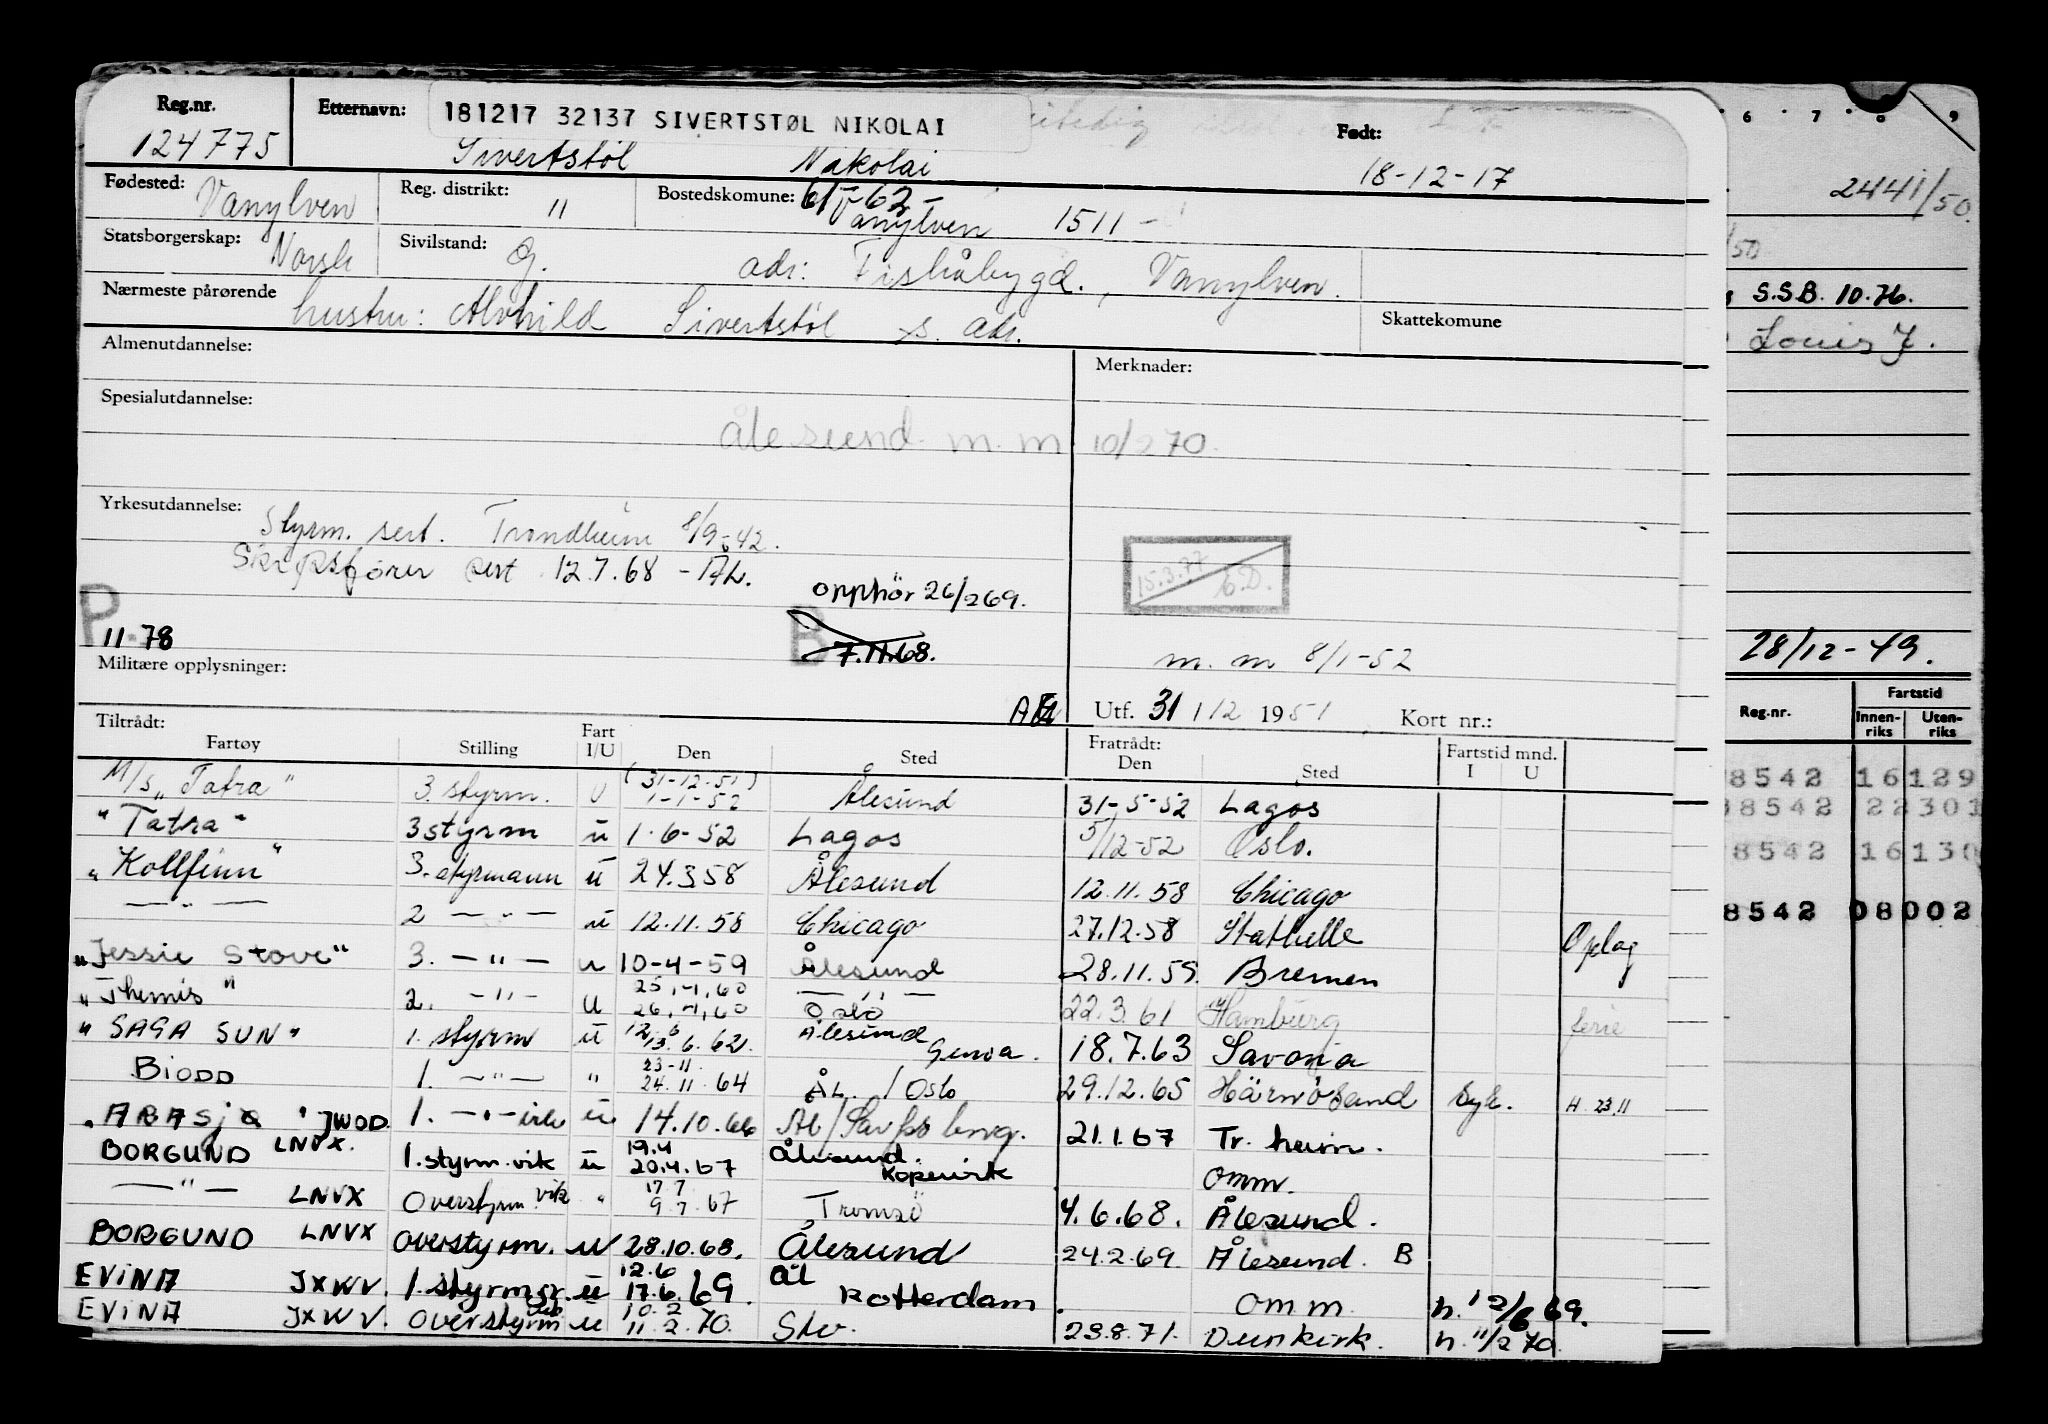 Reg.nr. Etternavn: 181217 32137 SIVERTSTØL NIKOLAI Født:
124775 Sivertstøl Nikolai 18-12-17
Fødested: Vanylven Reg. distrikt: " Bostedskomune: 61-62- Vanylven 1511-
Statsborgerskap: Norsk Sivilstand: G. adr: Fiskåbygd., Vanylven.
Nærmeste pårørende hustru: Alvhild Sivertstøl s. adr. Skattekomune
Almenutdannelse: Merknader:
Spesialutdannelse:
Ålesund m.m 10/2 70.
Yrkesutdannelse: Styrm. sert. Trondheim 8/9-42.
Skipsfører sert 12.7.68 - ÅL.
15.3.77 / 6.D.
opphör 26/2 69.
P 11-78 B 7.11.68.
m. m 8/1-52
Militære opplysninger:
Utf. 31/12 1951 Kort nr.:
Tiltrådt: Fratrådt:
Fartøy Stilling Fart I/U Den Sted Den Sted Fartstid mnd. I U
M/s "Tatra" 3. styrm. U (31-12-51) 1-1-52 Ålesund 31-5-52 Lagos
"Tatra" 3 styrm u 1-6-52 Lagos 5/12-52 Oslo.
"Kollfinn" 3. styrmann u 24.3.58 Ålesund 12.11.58 Chicago
— " — 2 — " — u 12.11.58 Chicago 27.12.58 Stathelle Oplag
"Jessie Stove" 3. — " — u 10-4-59 Ålesund 28.11.59. Bremen
"Themis" 2. — " — U 25.4.60 26.4.60 — " — Oslo 22.3.61 Hamburg ferie
"SAGA SUN" 1. styrm u 12.6 13.6.62. Ålesund Genoa. 18.7.63 Savona
BIODD 1. — " — " 23-11 24.11.64 ÅL. / Oslo 29.12.65 Härnösand Syk. H. 23.11
"ABASJA" JWOD 1. — " — vik u 14.10.66 Ål/Sarpsborg. 21.1.67 Tr. heim.
BORGUND LNVX. 1. styrm. vik u 19.4 20.4.67 Ålesund. Kopervik omm.
— " — LNVX Overstyrm. vik " 17.7 9.7.67 Tromsö 4.6.68. Ålesund.
BORGUND LNVX overstyrm. u 28.10.68. Ålesund 24.2.69 Ålesund. B
EVINA JXWV. 1. styrm u 12.6 17.6.69. ÅL Rotterdam omm h. 12/6 69.
EVINA JXWV. overstyrm u 10.2 11.2.70. Stv. 23.8.71. Dunkirk. h. 11/2 70.
6 7 8 9
2441/50.
/50
S.S.B. 10.76.
Louis J.
28/12-49.
Reg.nr. Fartstid
Innen-riks Uten-riks
8542 16 129
8542 22 301
8542 16 130
8542 08 002